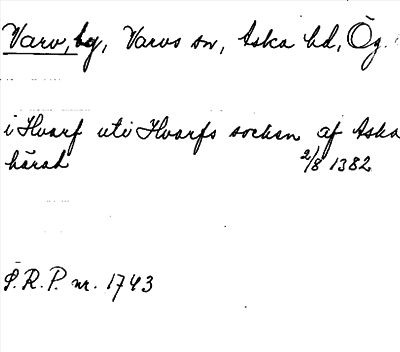 Varv, by, Varvs sn, Aska hd, Ög.
i Hvarf uti Hvarfs socken af Aska
härad 2/8 1382
P.R.P. nr. 1743